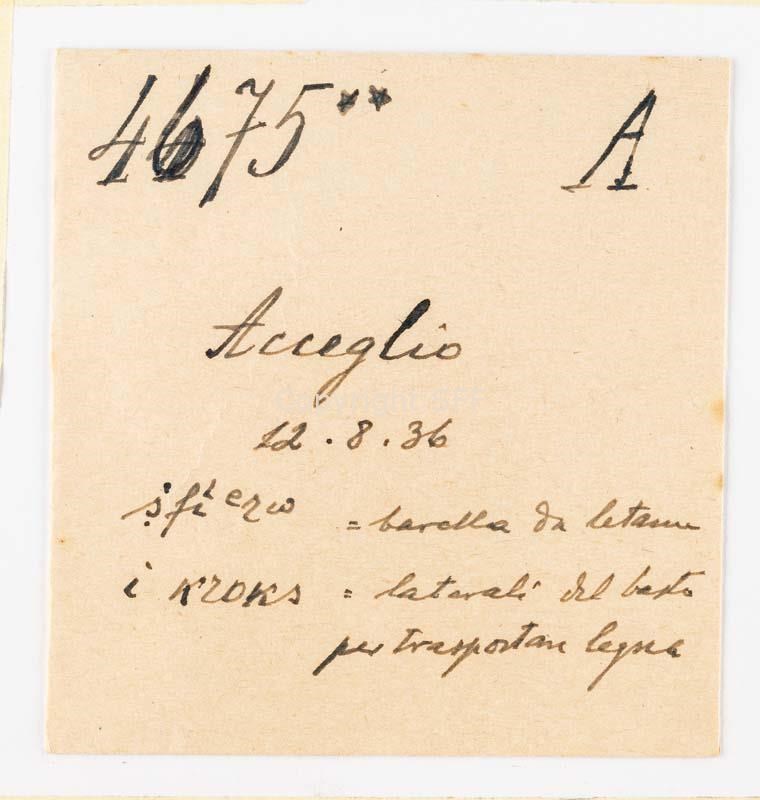 4675** A
Acceglio
12.8.36
= barella da letame
i kroks = laterali del basto
per trasportare legna